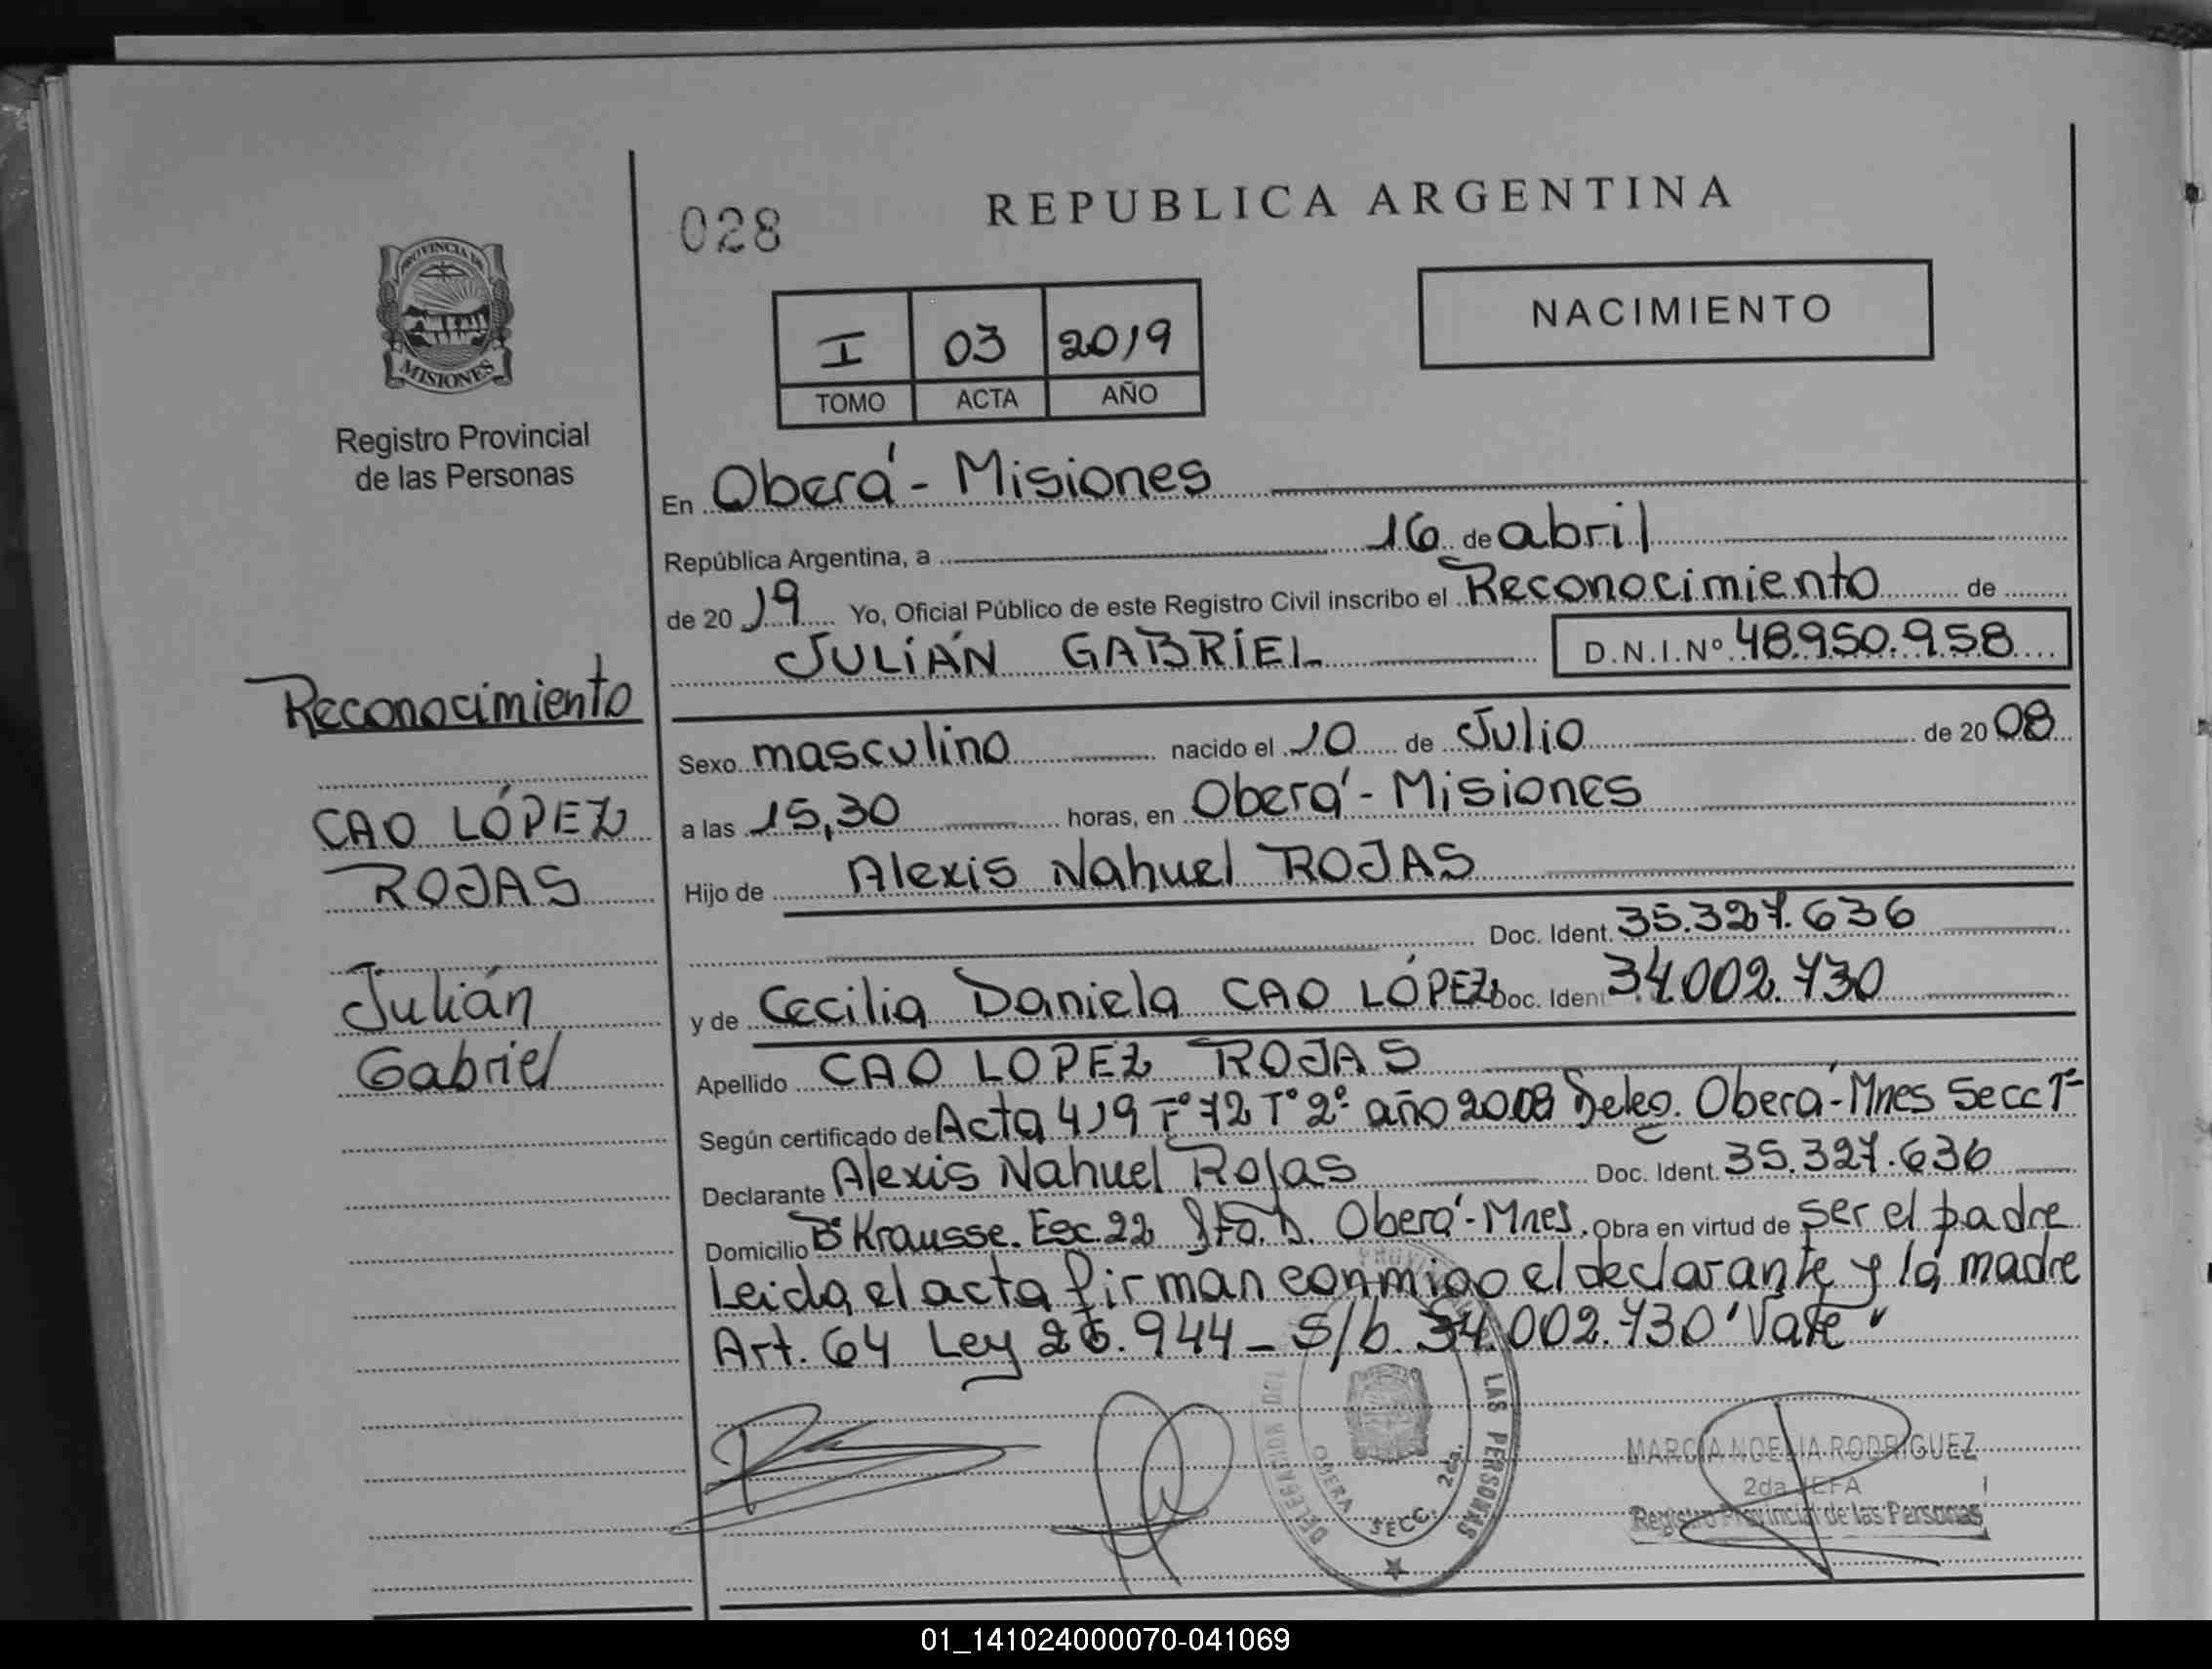 028
REPUBLICA ARGENTINA
PROVINCIA DE
MISIONES
Registro Provincial
de las Personas
I 03 2019
TOMO ACTA AÑO
NACIMIENTO
En Oberá - Misiones
República Argentina, a 16 de abril
de 2019 Yo, Oficial Público de este Registro Civil inscribo el Reconocimiento de
JULIÁN GABRIEL D.N.I.Nº 48.950.958
Reconocimiento
CAO LÓPEZ
ROJAS
Julián
Gabriel
Sexo masculino nacido el 10 de Julio de 2008
a las 15,30 horas, en Oberá - Misiones
Hijo de Alexis Nahuel ROJAS
Doc. Ident. 35.327.636
y de Cecilia Daniela CAO LÓPEZ Doc. Ident 34.002.730
Apellido CAO LOPEZ ROJAS
Según certificado de Acta 419 Fº 72 Tº 2º año 2008 Deleg. Oberá - Mnes Secc 1ª
Declarante Alexis Nahuel Rojas Doc. Ident. 35.327.636
Domicilio Bº Krausse. Esc. 22 Oberá - Mnes. Obra en virtud de ser el padre
Leida el acta firman conmigo el declarante y la madre
Art. 64 Ley 26.944 - S/b. 34.002.730 "Vale"
DELEGACION LAS PERSONAS
OBERA SECC. 2da.
MARCIA NOELIA RODRIGUEZ
2da JEFA
Registro Provincial de las Personas
01_141024000070-041069